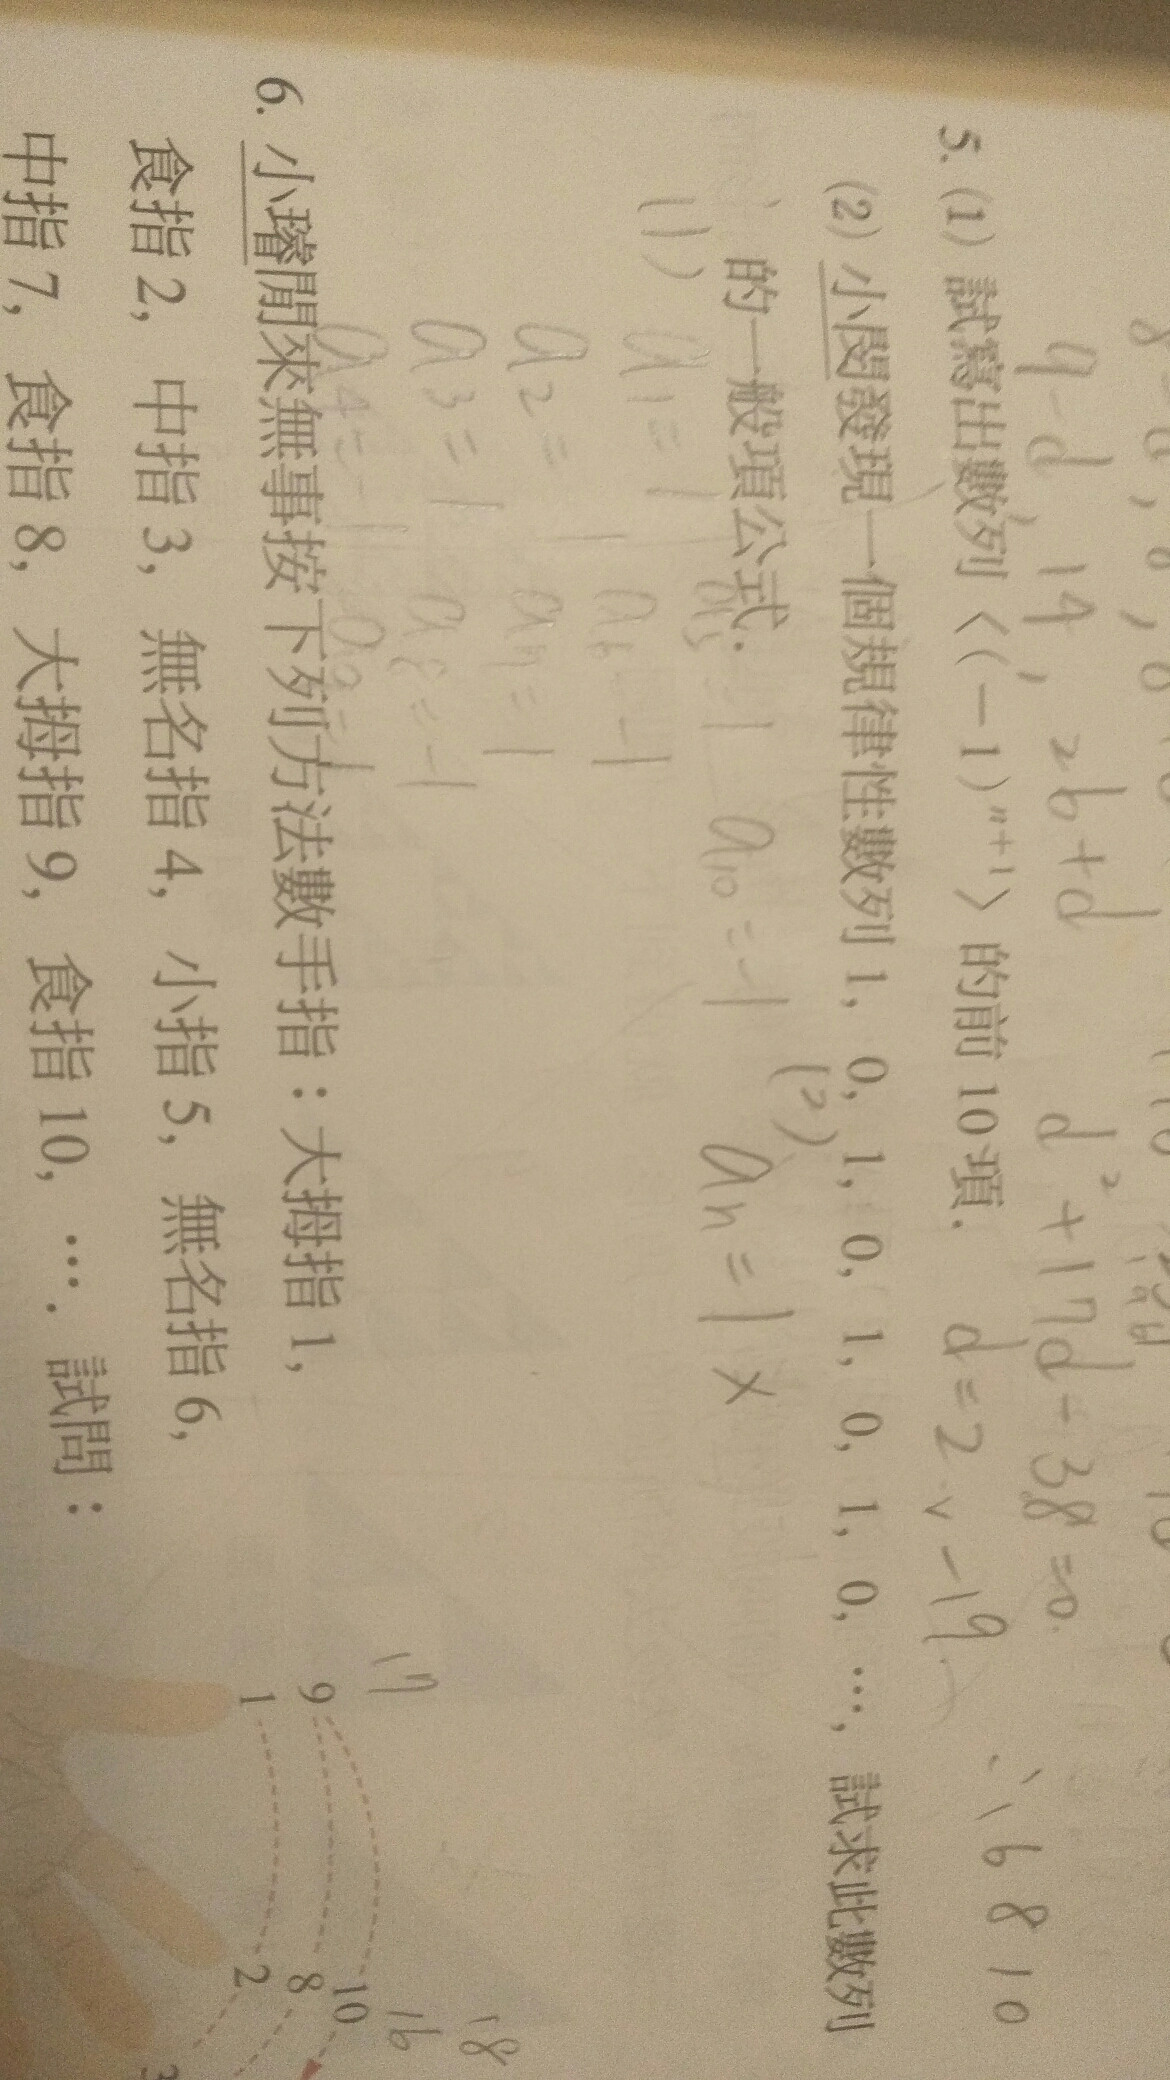 9-d, 19, 2b+d
d²+17d-38=0
d=2 ∨ -19
∴ 6 8 10
5. (1) 試寫出數列〈(-1)ⁿ⁺¹〉的前 10 項.
(2) 小閎發現一個規律性數列 1, 0, 1, 0, 1, 0, 1, 0, …, 試求此數列
的一般項公式.
(1) a1=1 a5=1 a10=-1
(2) an=1 ×
a2=-1 a6=-1
a3=1 a7=1
a4=-1 a8=-1
a9=1
6. 小璿閒來無事按下列方法數手指：大拇指 1,
食指 2, 中指 3, 無名指 4, 小指 5, 無名指 6,
中指 7, 食指 8, 大拇指 9, 食指 10, …. 試問：
17
18
16
9
10
8
1
2
3